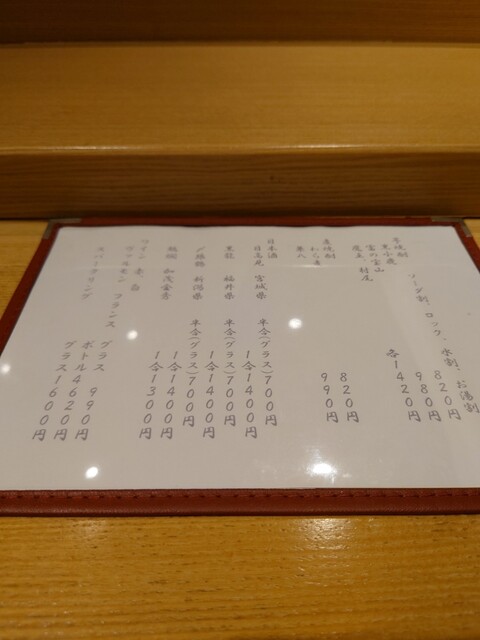 芋焼酎
ソーダ割、ロック、水割、お湯割
黒小鹿 820円
富の宝山 980円
魔王 村尾 各1420円
麦焼酎
わら麦 820円
兼八 990円
日本酒
日高見 宮城県 半合(グラス)700円
1合1400円
黒龍 福井県 半合(グラス)700円
1合1400円
〆張鶴 新潟県 半合(グラス)700円
1合1400円
加茂金秀 1合1300円
ワイン 赤・白
フランス グラス 990円
ボトル4620円
スパークリング グラス1600円